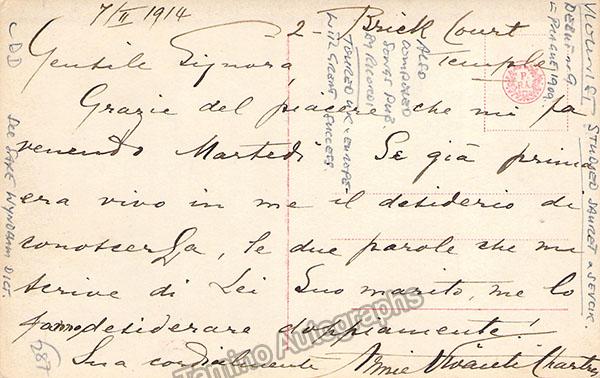 7/II 1914
2 - Brick Court
Temple
Gentile Signora
Grazie del piacere che mi fa
venendo Martedi. Se già prima
era vivo in me il desiderio di
conoscerLa, le due parole che mi
scrive di Lei Suo marito, me lo
fanno desiderare doppiamente!
Sua cordialmente Annie Vivanti Chartres
VIOLINIST STUDIED SAURET & SEVCIK.
DEBUT
= PRAGUE 1909.
ALSO
COMPOSED
SONGS PUB.
BY RICORDI
TOURED UK & EUROPE
WITH GREAT
SUCCESS.
SEE SAXE WYNDHAM DICT.
287
Tamino Autographs